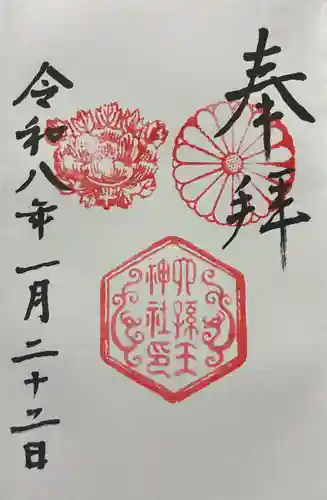 奉拝
六孫王
神社印
令和八年一月二十二日